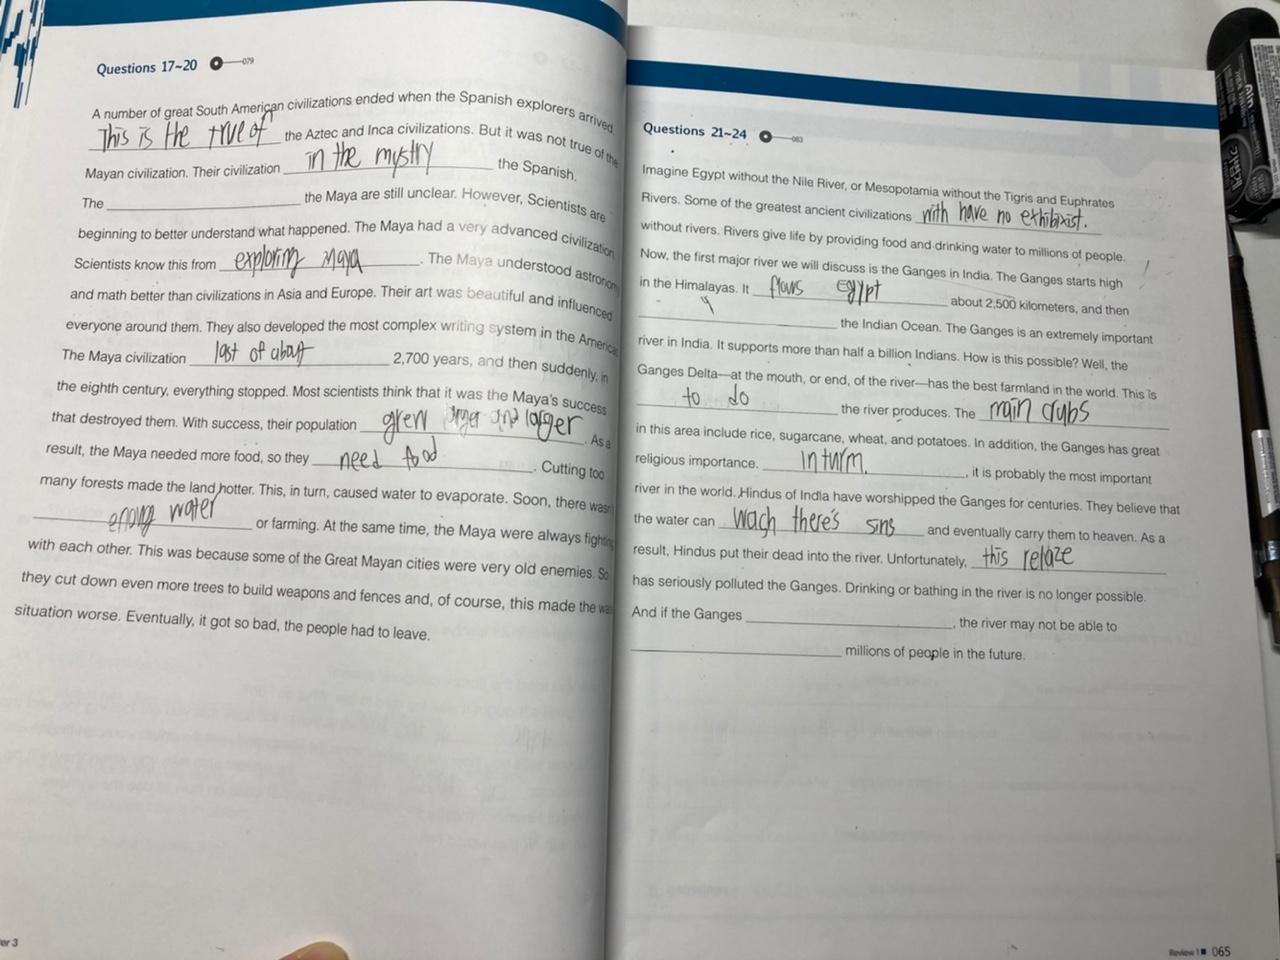 Questions 17~20
079
A number of great South American civilizations ended when the Spanish explorers arrived.
This is the true of the Aztec and Inca civilizations. But it was not true of the
Mayan civilization. Their civilization in the mystry the Spanish.
The the Maya are still unclear. However, Scientists are
beginning to better understand what happened. The Maya had a very advanced civilization.
Scientists know this from exploring maya. The Maya understood astronomy
and math better than civilizations in Asia and Europe. Their art was beautiful and influenced
everyone around them. They also developed the most complex writing system in the Americas.
The Maya civilization last of about 2,700 years, and then suddenly, in
the eighth century, everything stopped. Most scientists think that it was the Maya's success
that destroyed them. With success, their population grew larger and larger. As a
result, the Maya needed more food, so they need food. Cutting too
many forests made the land hotter. This, in turn, caused water to evaporate. Soon, there wasn't
enoug water or farming. At the same time, the Maya were always fighting
with each other. This was because some of the Great Mayan cities were very old enemies. So
they cut down even more trees to build weapons and fences and, of course, this made the
situation worse. Eventually, it got so bad, the people had to leave.
3
Questions 21~24
083
Imagine Egypt without the Nile River, or Mesopotamia without the Tigris and Euphrates
Rivers. Some of the greatest ancient civilizations with have no
without rivers. Rivers give life by providing food and drinking water to millions of people.
Now, the first major river we will discuss is the Ganges in India. The Ganges starts high
in the Himalayas. It flows Egypt about 2,500 kilometers, and then
the Indian Ocean. The Ganges is an extremely important
river in India. It supports more than half a billion Indians. How is this possible? Well, the
Ganges Delta—at the mouth, or end, of the river—has the best farmland in the world. This is
to do the river produces. The main crubs
in this area include rice, sugarcane, wheat, and potatoes. In addition, the Ganges has great
religious importance. In turm, it is probably the most important
river in the world. Hindus of India have worshipped the Ganges for centuries. They believe that
the water can wach there's sins and eventually carry them to heaven. As a
result, Hindus put their dead into the river. Unfortunately, this relaze
has seriously polluted the Ganges. Drinking or bathing in the river is no longer possible.
And if the Ganges , the river may not be able to
millions of people in the future.
Review 1 065